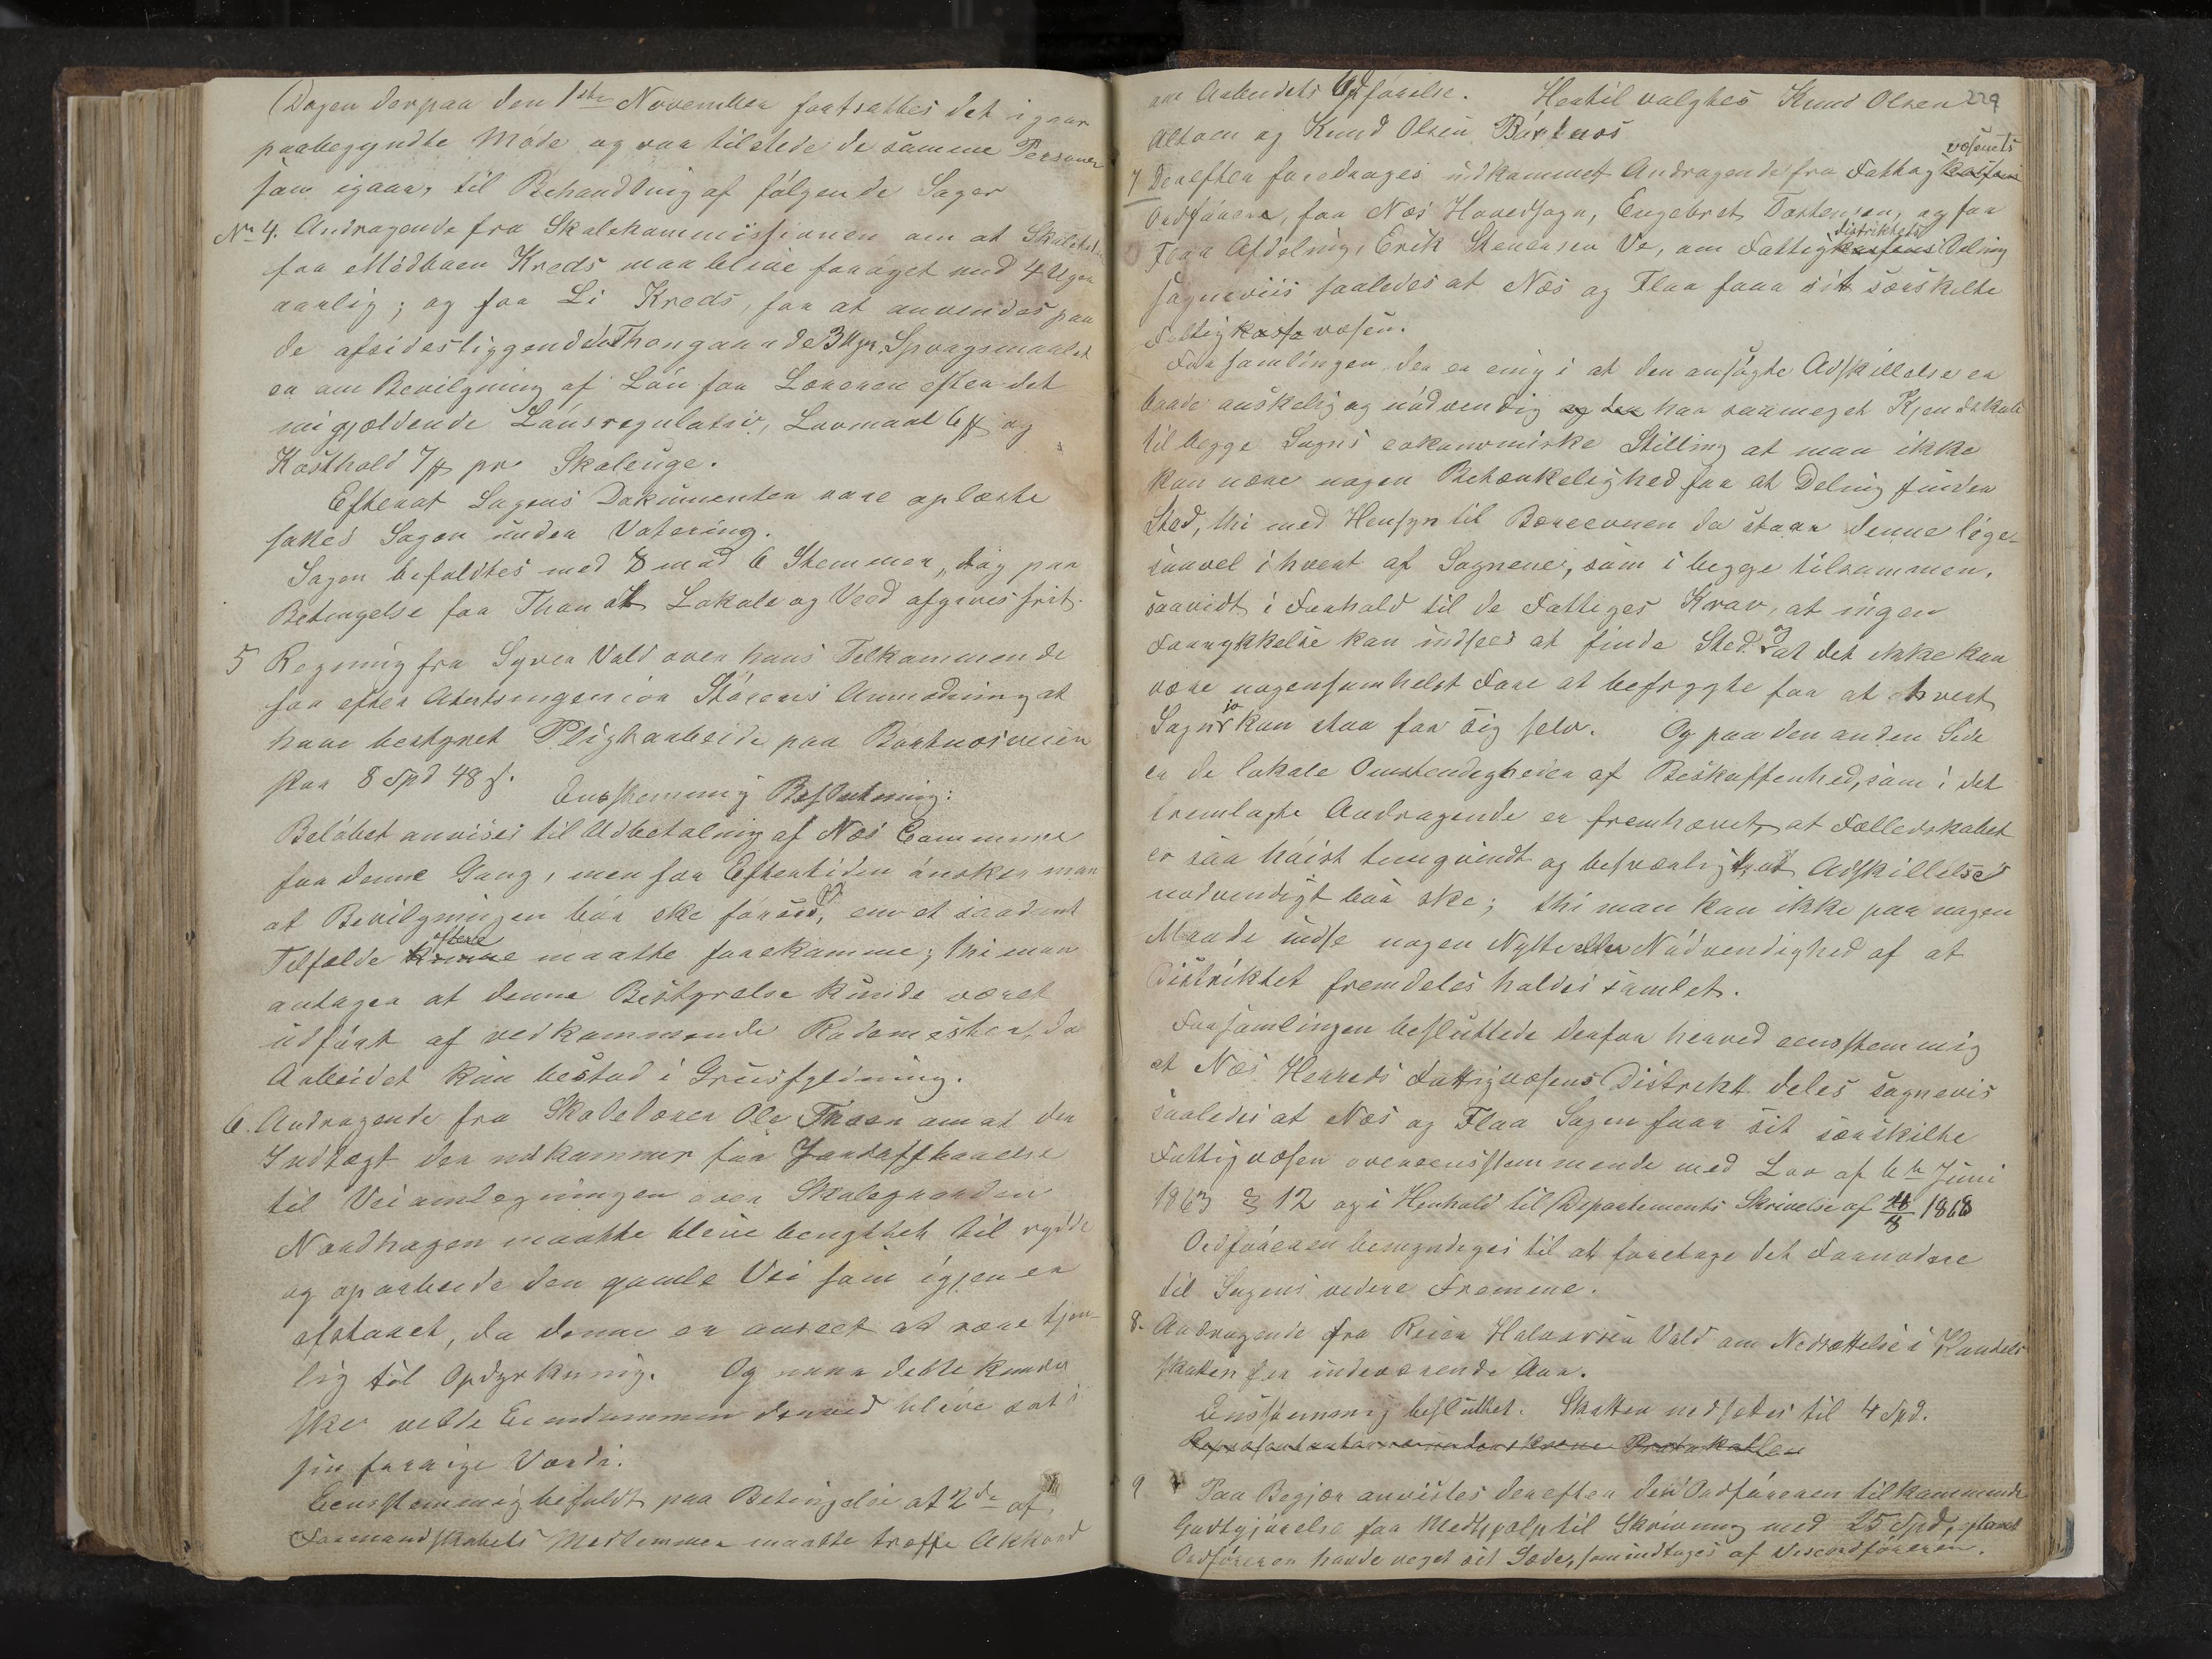 Dagen derpaa den 1ste November fortsattes det igaar
paabegyndte Møde og var tilstede de samme Personer
som igaar, til Behandling af følgende Sager
No 4. Andragende fra Skolekommissionen om at Skoletiden
for Rødbøen Kreds maa blive forøget med 4 Uger
aarlig; og for Li Kreds, for at anvendes paa
de afsidesliggende Thongaarde 3 Uger. Spørgsmaalet
er om Bevilgning af Løn for Læreren efter det
nugjældende Lønsregulativ, Lønmaal 6 ß og
Kosthold 7 ß pr Skoleuge.
Efterat Sagens Dokumenter vare oplæste
sattes Sagen under Votering.
Sagen befaldtes med 8 mod 6 Stemmer, dog paa
Betingelse for Thon at Lokale og Ved afgives frit.
5 Regning fra Syver Vold over hans Tilkommende
for efter Amtsingeniør Størens Anmodning at
have bestyret Pligtarbeide paa Bortnæsveien
stor 8 Spd 48 ß.
Eenstemmig Beslutning:
Beløbet anvises til Udbetaling af Næs Commune
for denne Gang, men for Eftertiden ønsker man
at Bevilgningen bør ske forud, om et saadant
Tilfælde oftere maatte forekomme; thi man
antager at denne Bestyrelse kunde været
udført af vedkommende Rodemester, da
Arbeidet kun bestod i Gruusfyldning.
6. Andragende fra Skolelærer Ole Thoen om at den
Indtægt der udkommer for Jordafstaaelse
til Veiomlægningen over Skolegaarden
Nordhagen maatte blive benyttet til rydde
og oparbeide den gamle Vei som igjen er
afstaaet, da denne er anseet at være tjen-
lig til Opdyrkning. Og naar dette kunde
ske vilde Eiendommen derved blive sat i
sin forrige Værdi.
Eenstemmig befaldt paa Betingelse at 2de af
Formandskabets Medlemmer maatte træffe Akkord
229
om Arbeidets Udførelse. Hertil valgtes Knud Olsen
Alton og Knud Olsen Børtnæs
7 Derefter foredroges indkommet Andragende fra Fattigvæsenets
Ordførere, for Næs Hovedsogn, Engebret Torstensen, og for
Flaa Afdeling, Erik Stenersen Ve, om Fattigdistriktets Deling
sogneviis saaledes at Næs og Flaa faar sit særskilte
Fattigvæsen.
Forsamlingen der er enig i at den ansøgte Adskillelse er
baade ønskelig og nødvendig har saameget Kjendskab
til begge Sogns oekonomiske Stilling at man ikke
kan nære nogen Betænkelighed for at Deling finder
Sted, thi med Hensyn til Bæreevnen da staar denne lige-
saavel i hvert af Sognene, som i begge tilsammen,
saavidt i Forhold til de Fattiges Krav, at ingen
Forrykkelse kan indsees at finde Sted og at det ikke kan
være nogensomhelst Fare at befrygte for at hvert
Sogn jo kan staa for sig selv. Og paa den anden Side
er de lokale Omstændigheder af Beskaffenhed, som i det
fremlagte Andragende er fremhævet, at Fælledskabet
er saa høist tungvindt og besværligt, at Adskillelse
nødvendigt bør ske; thi man kan ikke paa nogen
Maade indse nogen Nytte eller Nødvendighed af at
Distriktet fremdeles holdes samlet.
Forsamlingen besluttede derfor herved eenstemmig
at Næs Herreds Fattigvæsens Distrikt deles sognevis
saaledes at Næs og Flaa Sogen faar sit særskilte
Fattigvæsen overeensstemmende med Lov af 6te Juni
1863 § 12 og i Henhold til Departements Skrivelse af 1868
Ordføreren bemyndiges til at foretage det Fornødne
til Sagens videre Fremme.
8. Andragende fra Reier Halvorsen Vold om Nedsættelse i Handels
skatten for indeværende Aar.
Eenstemmig besluttet. Skatten nedsættes til 4 Spd.
Repræsentanterne underskrev Protokollen
9 Paa Begjær anvistes derefter den Ordføreren tilkommende
Godtgjørelse for Medhjælp til Skrivning med 25 Spd, efterat
Ordføreren havde veget sit Sæde, som indtoges af Viseordføreren.